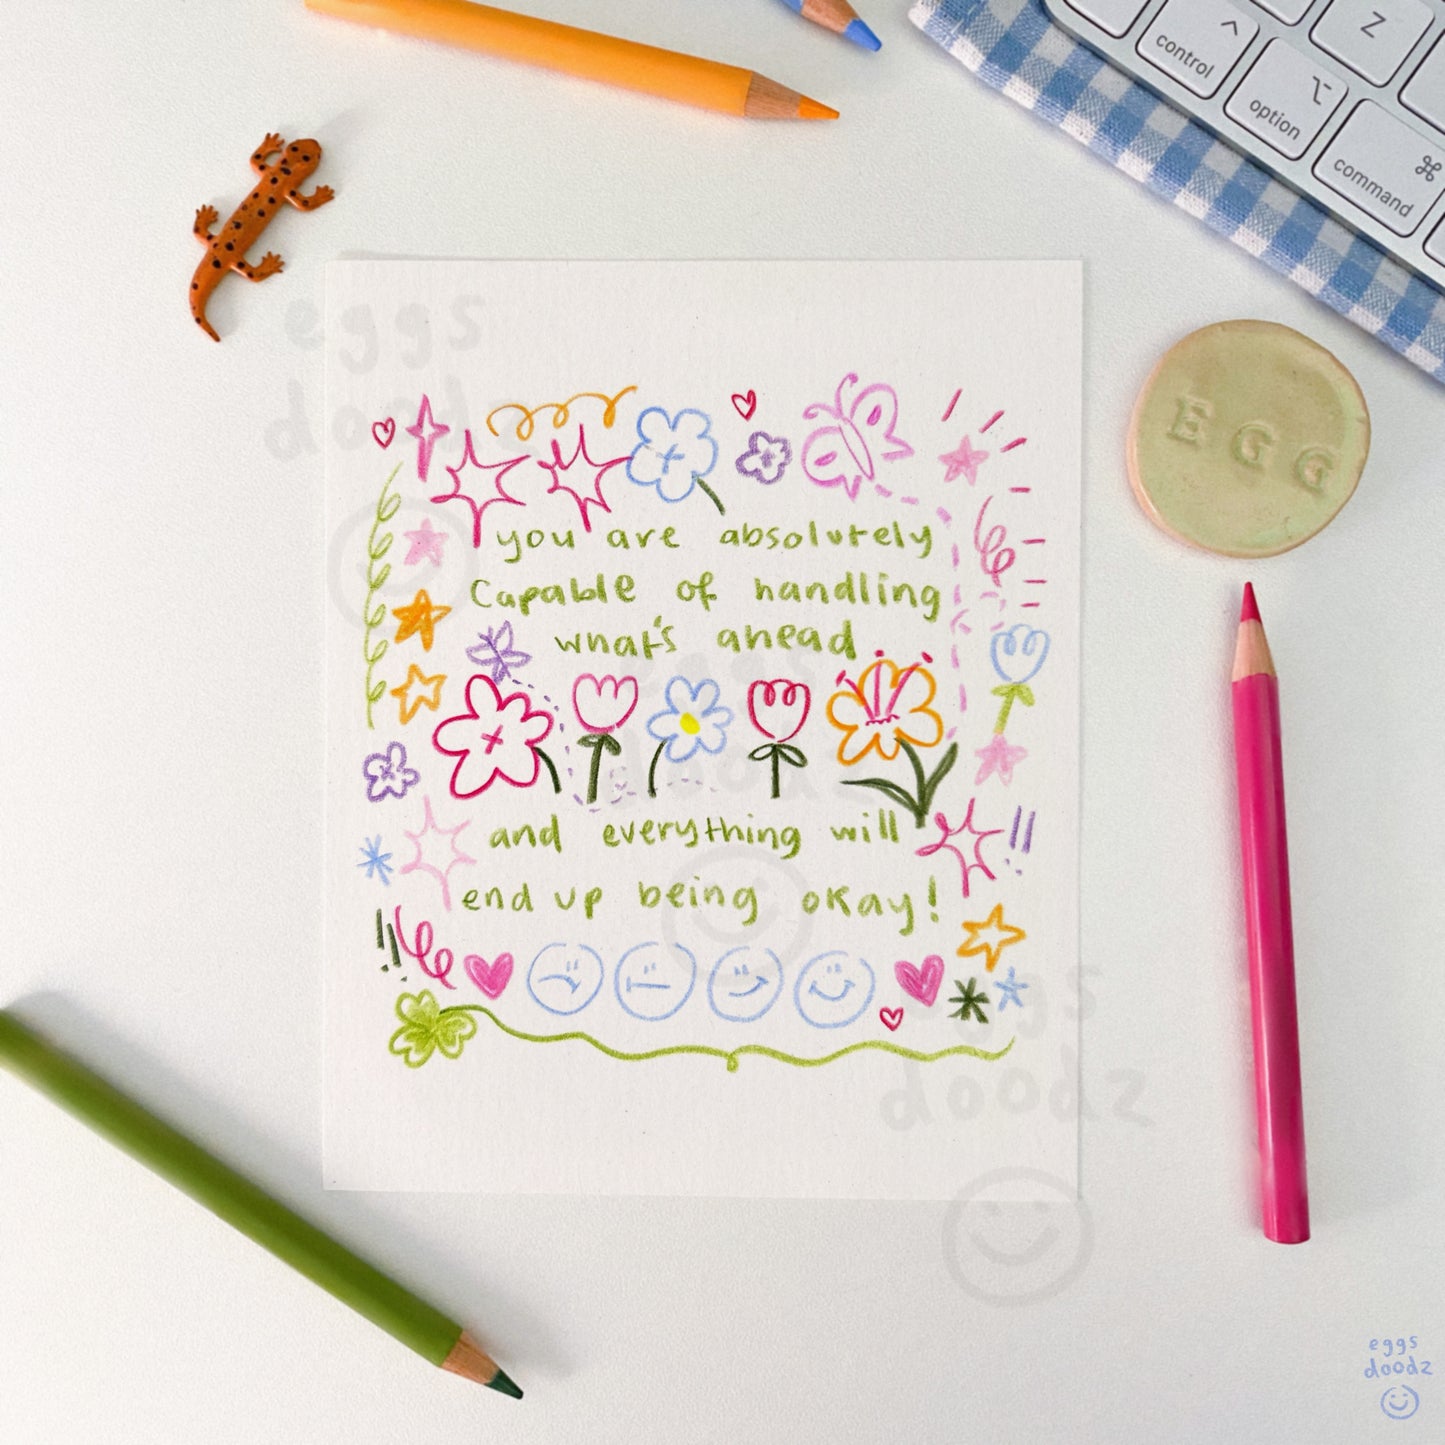 control
option
command
Z
EGG
eggs
doodz
you are absolutely
capable of handling
what's ahead
eggs
doodz
and everything will
end up being okay!
eggs
doodz
eggs
doodz